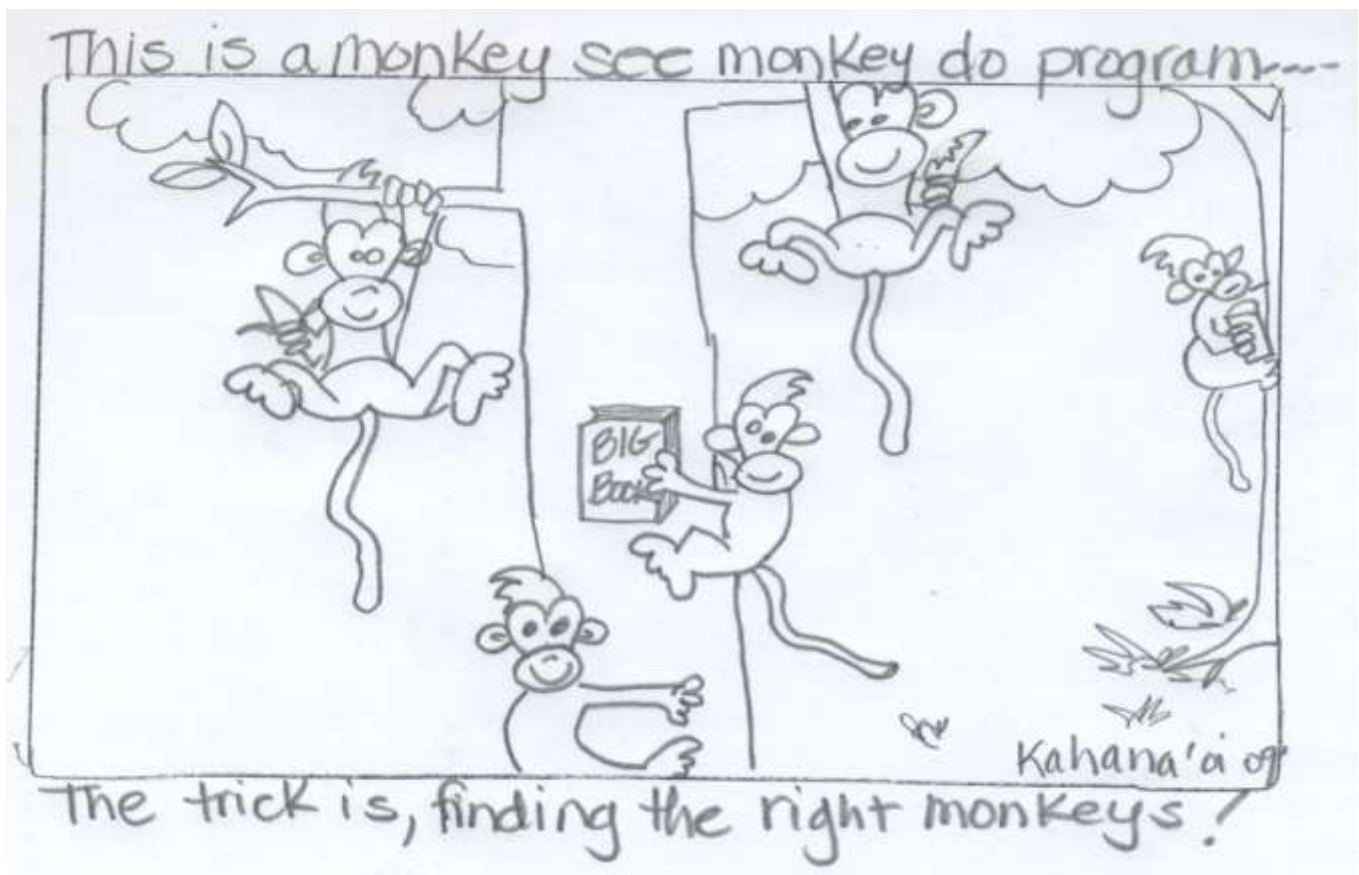 This is a monkey see monkey do program----
BIG
Book
Kahana'a 09
The trick is, finding the right monkeys!